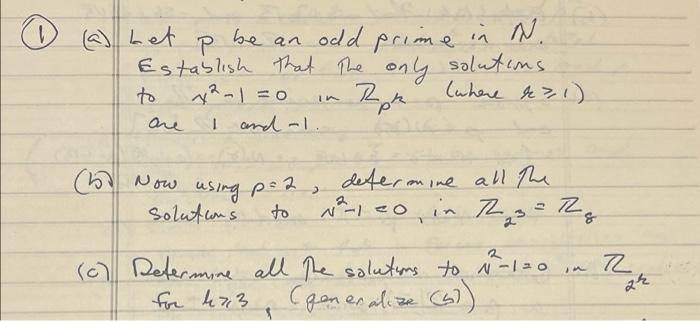 ① (a) Let p be an odd prime in N.
Establish that the only solutions
to x²-1=0 in Z_{p^k} (where k≥1)
are 1 and -1.
(b) Now using p=2, determine all the
solutions to x²-1=0, in Z_{2^3} = Z_8
(c) Determine all the solutions to x²-1=0 in Z_{2^k}
for k≥3, (generalize (b))